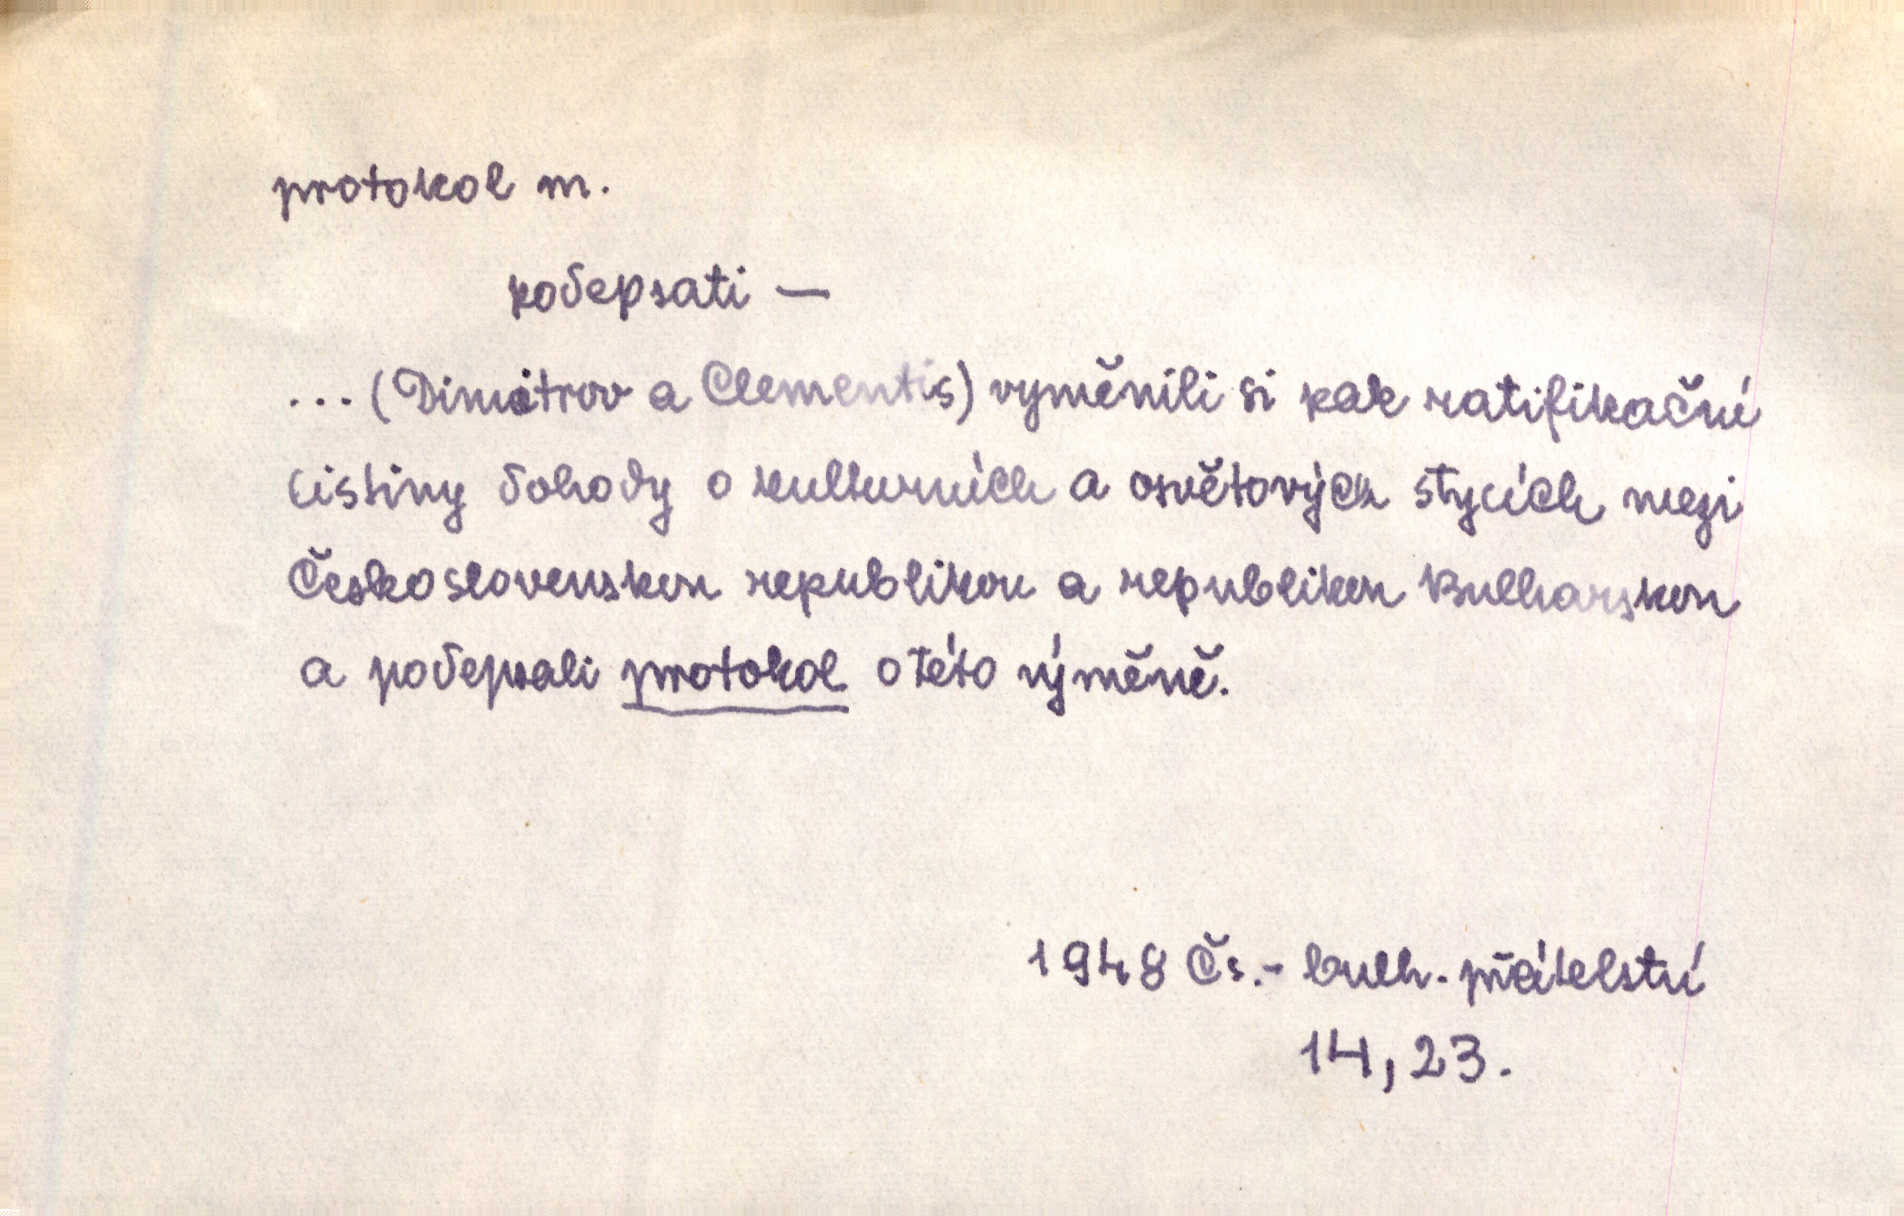 protokol m.
podepsati —
... (Dimitrov a Clementis) vyměnili si pak ratifikační
listiny dohody o kulturních a osvětových stycích mezi
Československou republikou a republikou Bulharskou
a podepsali protokol o této výměně.
1948 Čs.- bulh. přátelství
14, 23.